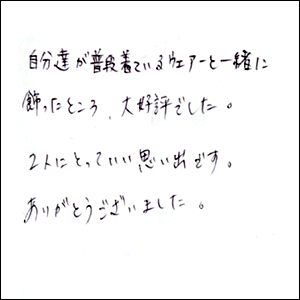 自分達が普段着ているウェアーと一緒に
飾ったところ、大好評でした。
2人にとっていい思い出です。
ありがとうございました。